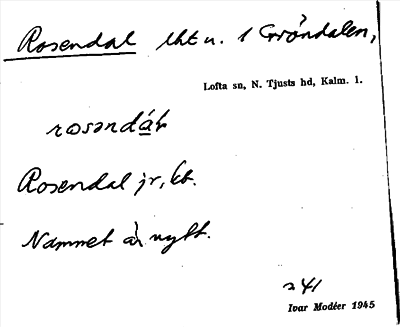 Rosendal lht u. 1 Gröndalen,
Lofta sn, N. Tjusts hd, Kalm. l.
Rosendal jr, kt.
Namnet är nytt.
241
Ivar Modéer 1945